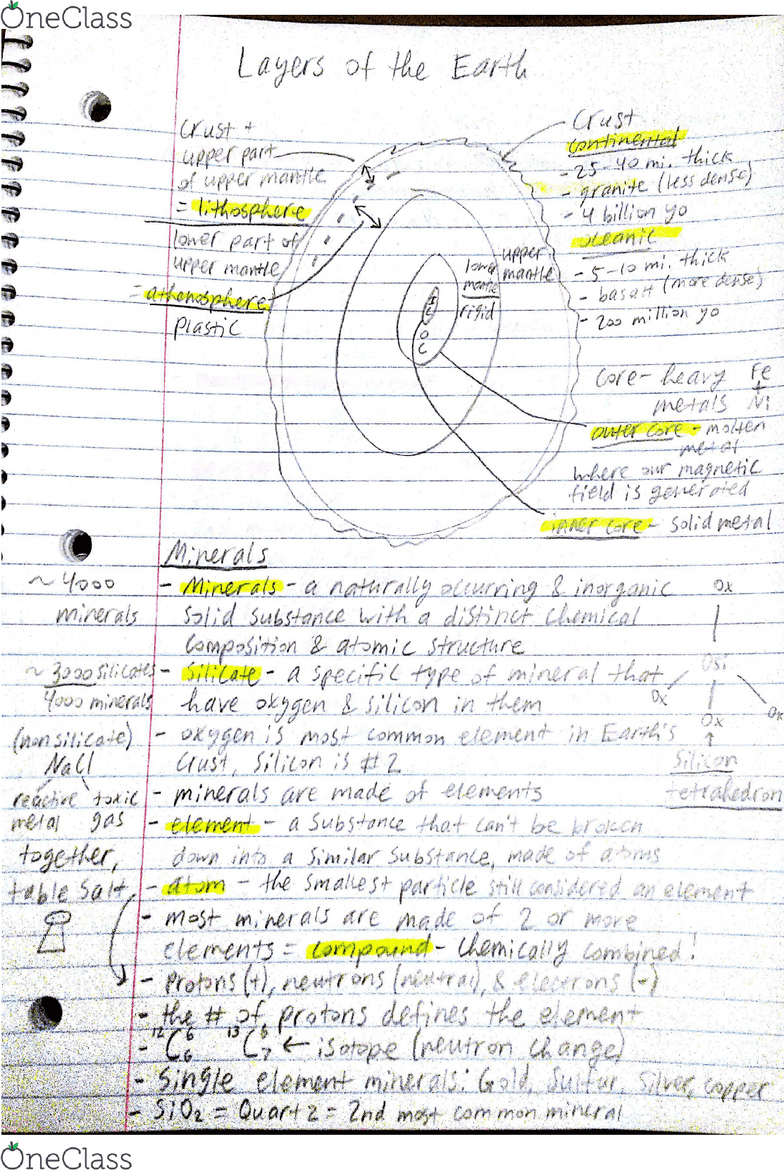 OneClass
Layers of the Earth
Crust +
upper part
of upper mantle
= lithosphere
lower part of
upper mantle
= athenosphere
plastic
Crust
continental
- 25-40 mi. thick
- granite (less dense)
- 4 billion yo
oceanic
- 5-10 mi. thick
- basalt (more dense)
- 200 million yo
upper
mantle
lower
mantle
rigid
I
C
O
C
core- heavy Fe
metals + Ni
outer core - molten
metal
where our magnetic
field is generated
inner core - solid metal
Minerals
~ 4000
minerals
- Minerals - a naturally occurring & inorganic
solid substance with a distinct chemical
composition & atomic structure
~ 3000 silicates
4000 minerals
- Silicate - a specific type of mineral that
have oxygen & silicon in them
Ox
Osi
Ox
Ox
Ox
Silicon
tetrahedron
(non silicate)
NaCl
reactive toxic
metal gas
together,
table salt
- oxygen is most common element in Earth's
crust, Silicon is #2
- minerals are made of elements
- element - a substance that can't be broken
down into a similar substance, made of atoms
- atom - the smallest particle still considered an element
- most minerals are made of 2 or more
elements = compound - chemically combined!
- Protons (+), neutrons (neutral), & electrons (-)
- the # of protons defines the element
- 12 C 6 6 13 C 6 7 ← isotope (neutron change)
- Single element minerals: Gold, Sulfur, Silver, copper
- SiO2 = Quartz = 2nd most common mineral
OneClass